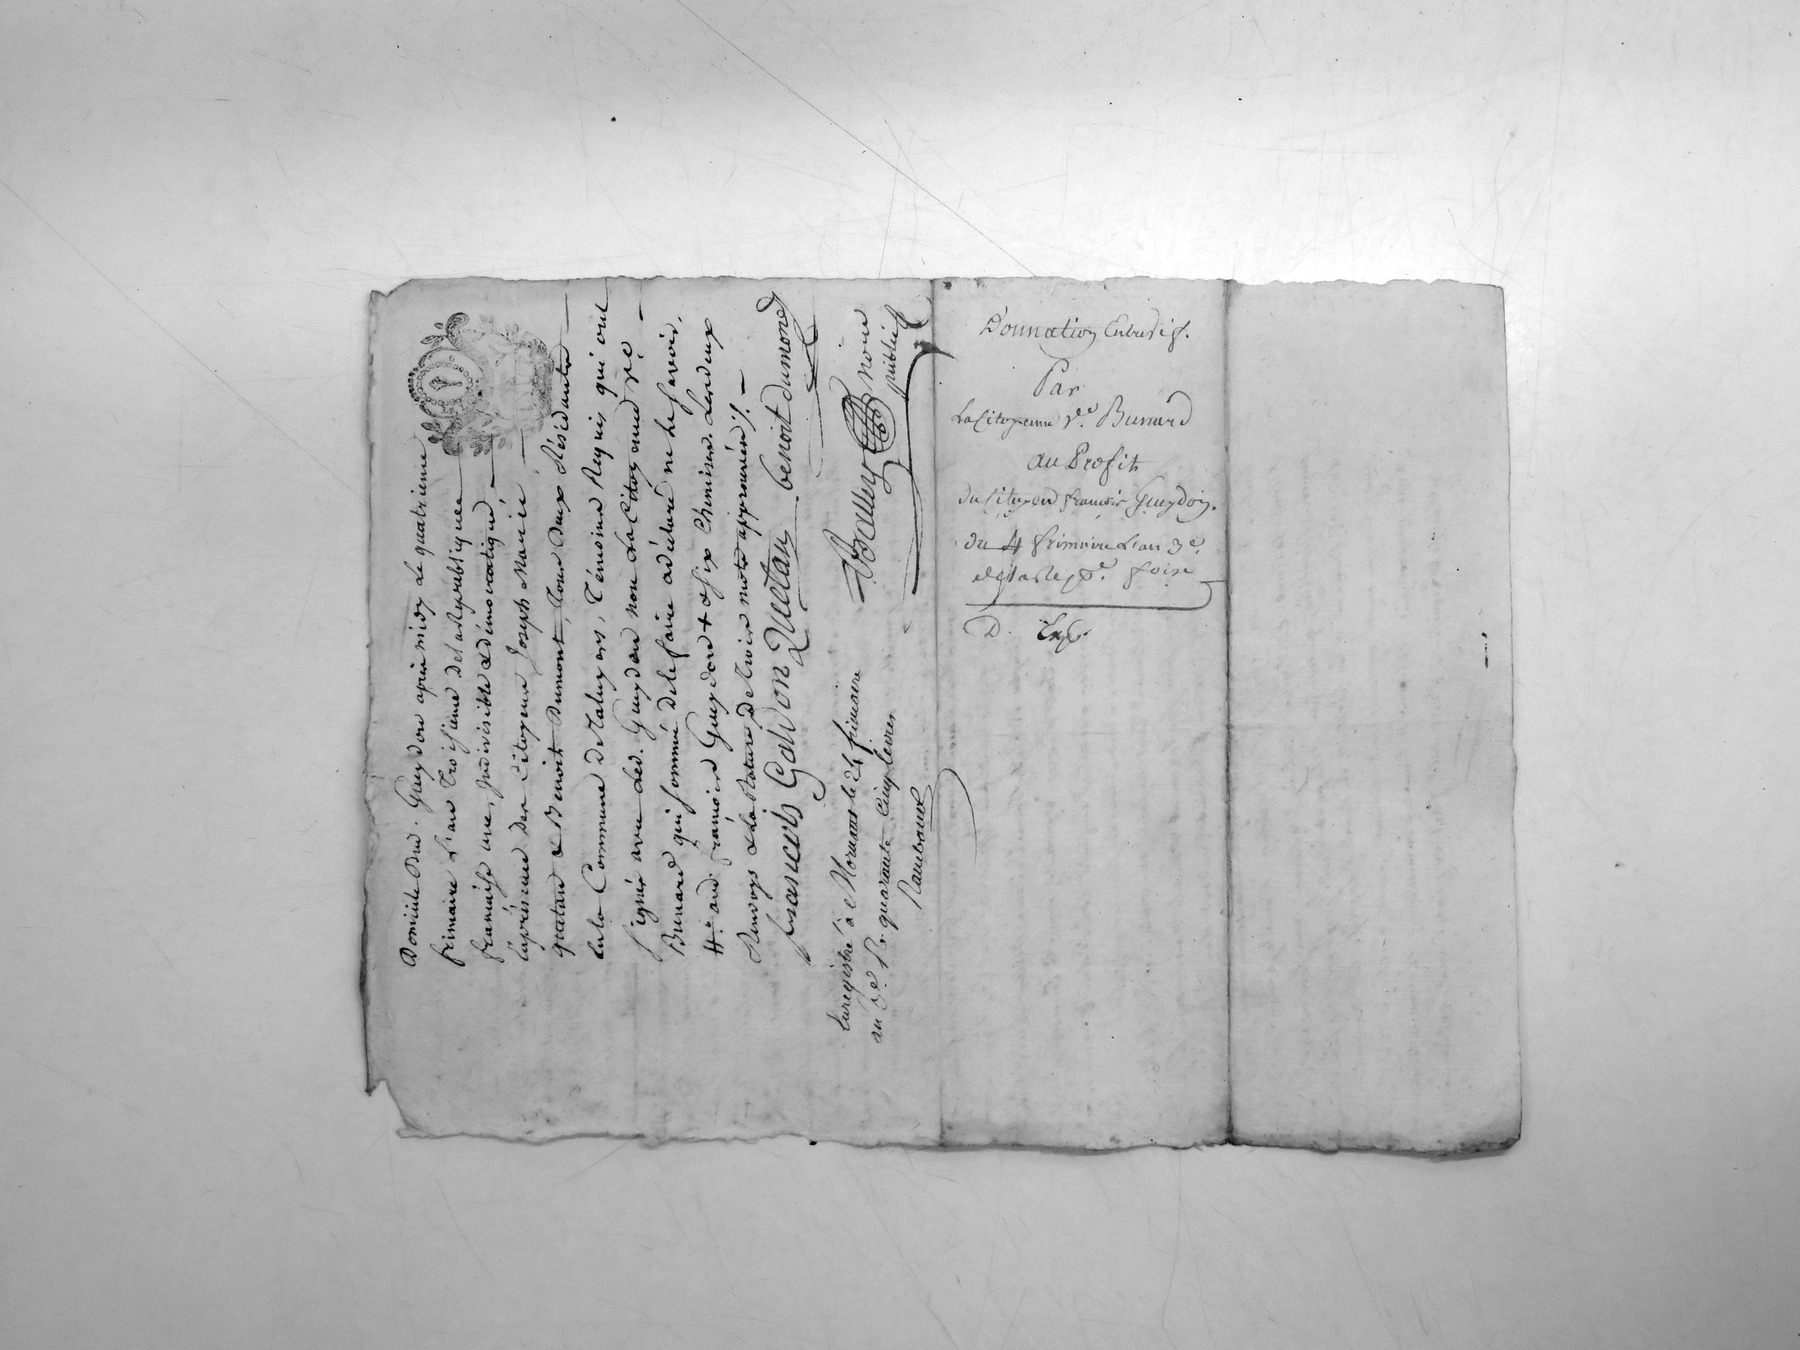 Domicile dud. Guydon apres midy Le quatrieme
frimaire L'an Troisieme dela Republique
francaise une, Indivisible & démocratique,
En présence des Citoyens Joseph Marie
quetan & Benoit Dumont, Tous deux Résidants
En la Commune de Taluyers, Témoins Requis qui ont
signés avec Led. Guydon non La Citoyenne ve
Bunard qui sommée de le faire a déclaré ne le savoir.
aud. françois Guydon + & six Chemises. Les deux
Renvoys & La Rature de trois mots approuvés ./. —
francois Gaidon Quetan benoit dumond
Enregistré à Mornant le 24 frimaire
an 3e. R. quarante Cinq livres
Raubaud
noire
public
Donnation Entrevifs.
Par
La Citoyenne Ve. Bunard
au Profit
du Citoyen francois Guydon.
du 4 frimaire L'an 3e.
D. Exp.